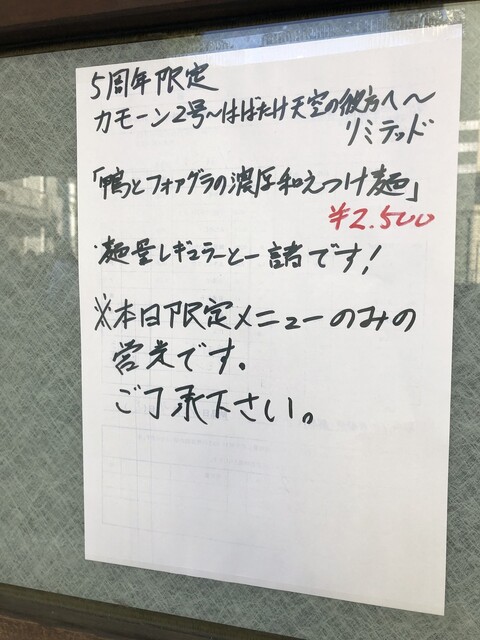 5周年限定
カモーン2号〜はばたけ天空の彼方へ〜
リミテッド
「鴨とフォアグラの濃厚和えつけ麺」
¥2.500
・麺量レギュラーと一諸です!
※本日限定メニューのみの
営業です。
ご了承下さい。